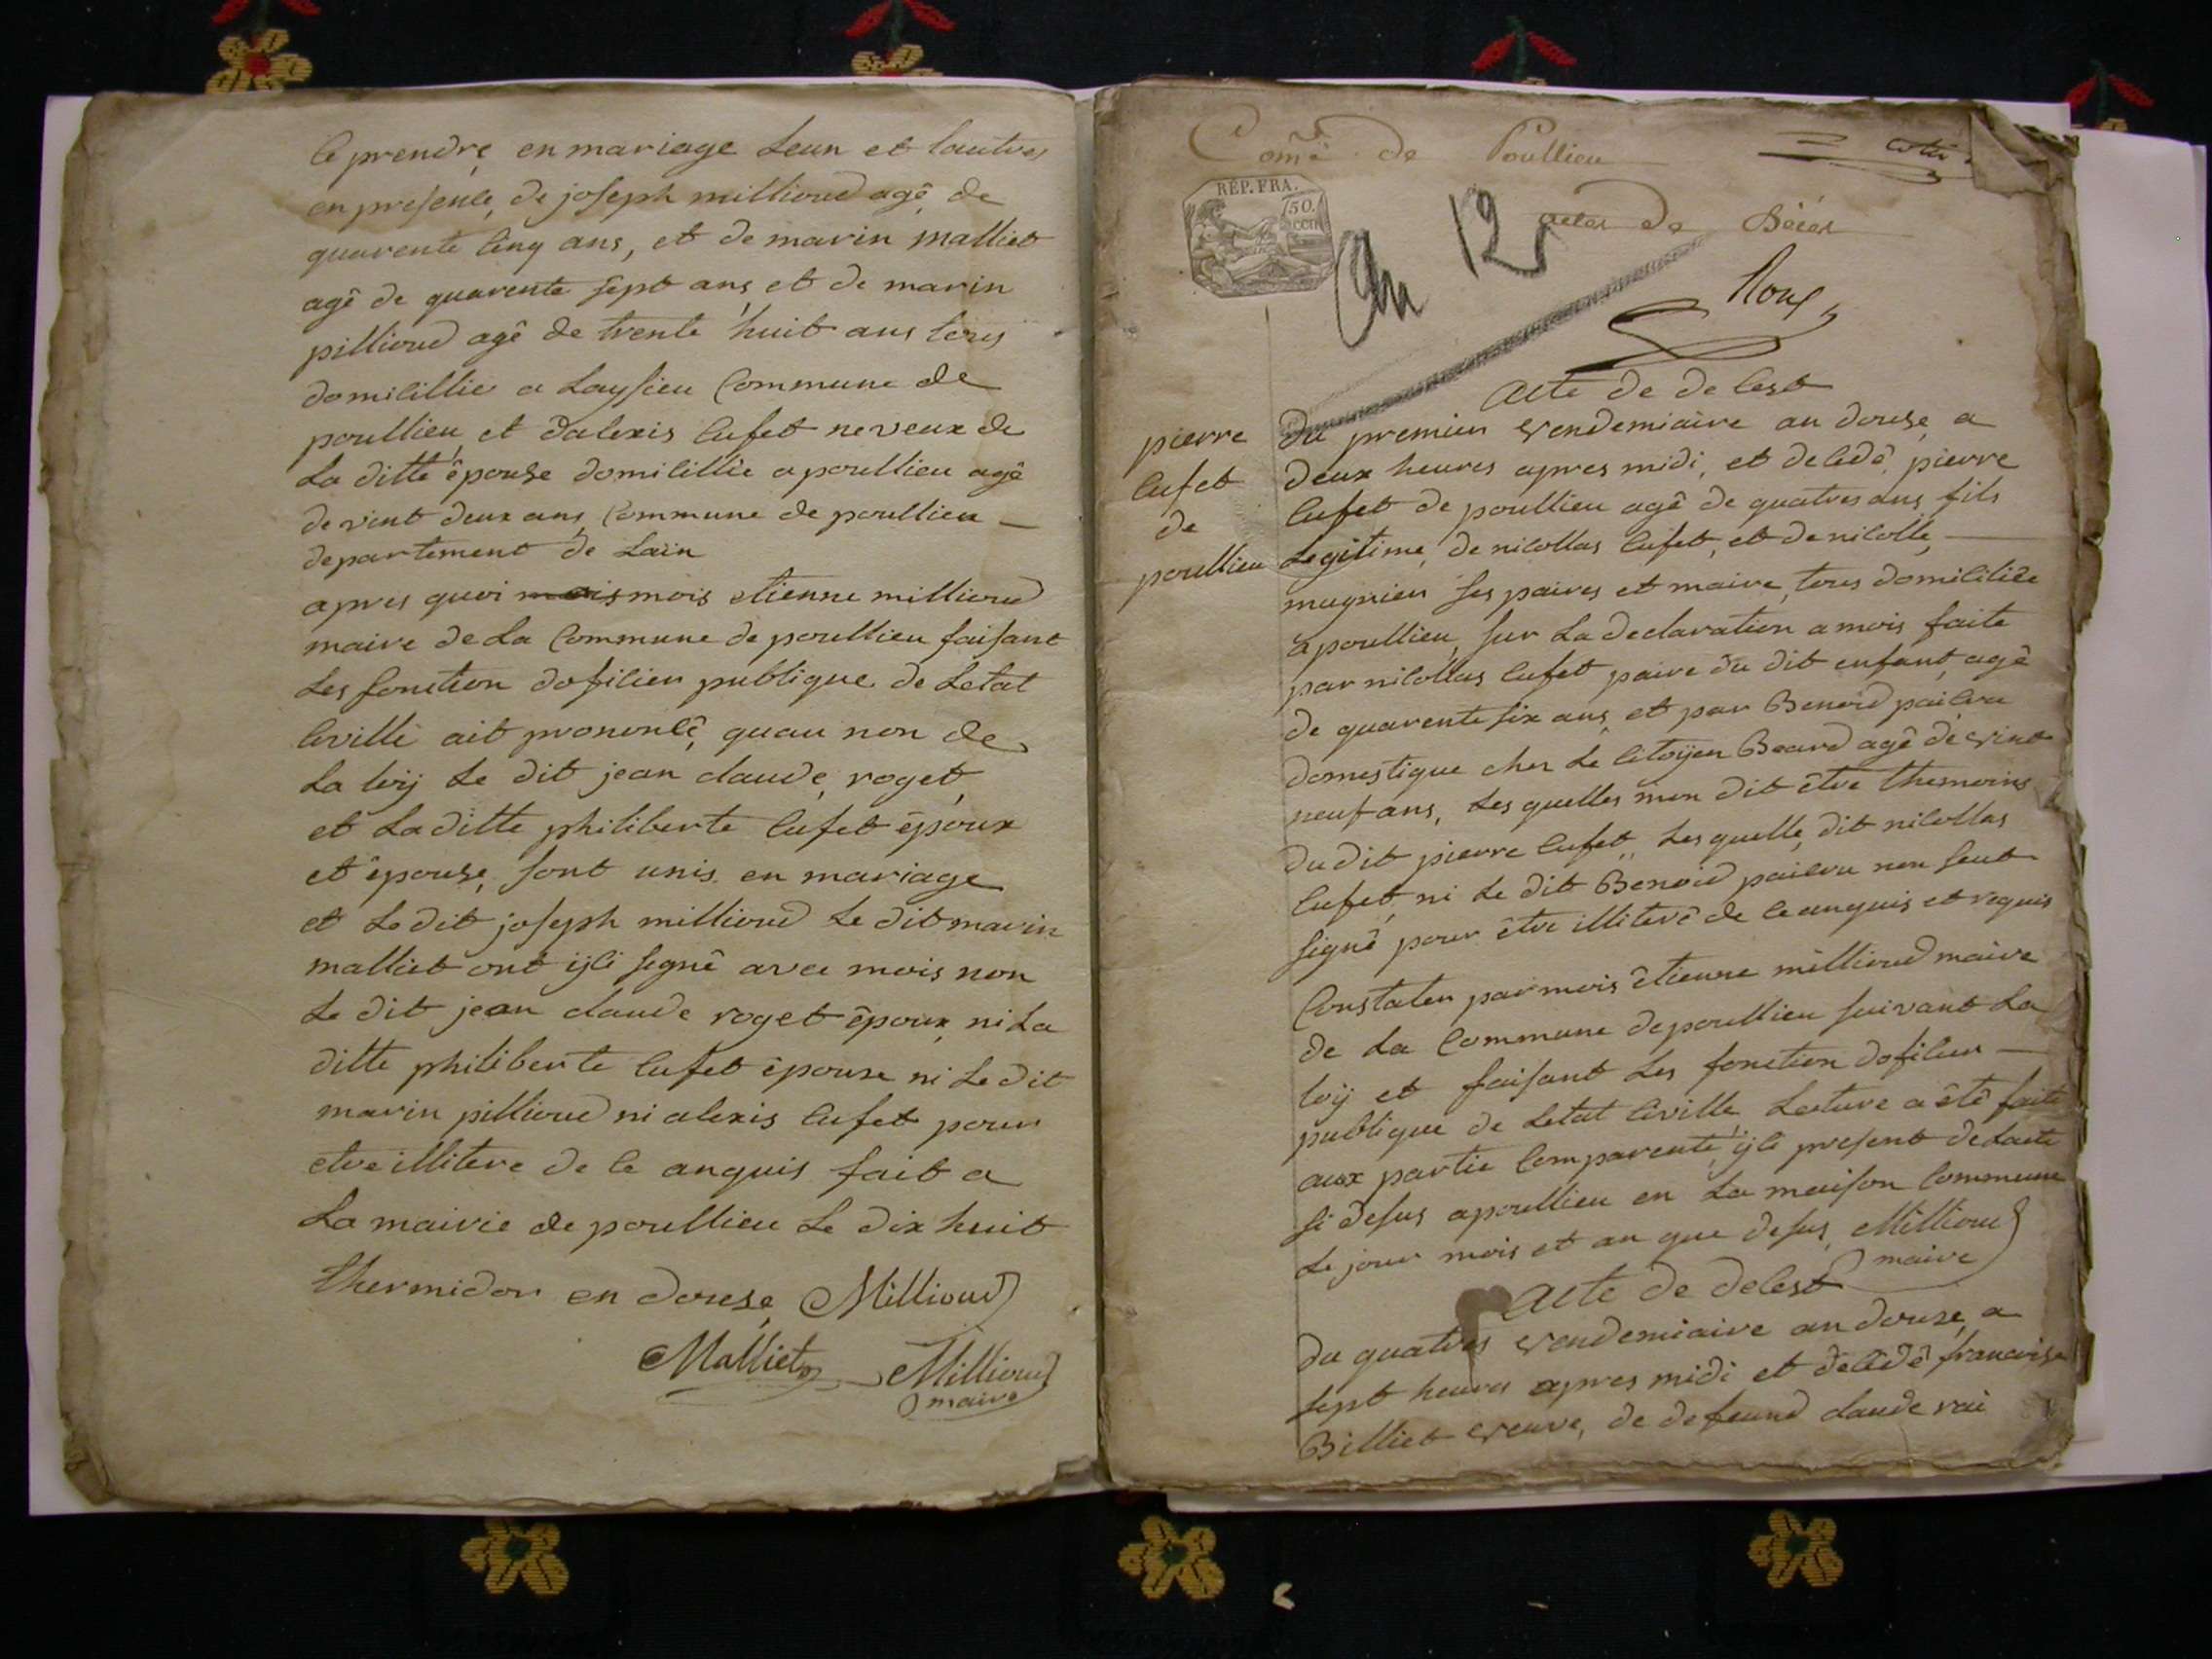 ce prendre en mariage Leun et lautres
en presente, de joseph millioud agê de
quarente cinq ans, et de marin malliet
agê de quarente sept ans, et de marin
pillioud agê de trente huit ans tous
domicillie a Laysieu Commune de
poullieu, et dalexis Cufet neveux de
La ditte êpouse domicillie a poullieu agê
de vint deux ans, Commune de poullieu
departement de Lain
apres quoi mais mois etienne millioud
maire de La Commune de poullieu faisant
Les fonction doficier publique de Letat
Civille ait prononcê, quau non de
La loij Le dit jean claude, roget,
et La ditte philiberte Cufet êpoux
et êpouse, sont unis en mariage
et Le dit joseph millioud Le dit marin
malliet ont ijci segnê avec mois non
Le dit jean claude roget êpoux, ni La
ditte philiberte Cufet êpouse ni Le dit
marin pillioud ni alexis Cufet pour
etre illitere de ce anquis fait a
La mairie de poullieu Le dix huit
thermidor en douse, Millioud
Malliet Millioud
maire
Comê de Poullieu
REP. FRA.
50.
CEN
An 12
actes de Dêcês
Roux
Acte de decest
pierre
Cufet
de
poullieu
Du premier vendemiaire an douse, a
deux heures apres midi, et decedê, pierre
Cufet de poullieu agê de quatres ans, fils
Legitime, de nicollas Cufet, et de nicolle,
mugnier ses paires et maire, tous domiciliêe
a poullieu, sur La declaration a mois faite
par nicollas Cufet paire du dit enfant, agê
de quarente six ans, et par Benoid
domestique cher Le Citoijen Beard agê de vint
neuf ans, Les quelles mon dit être themoins
du dit pierre Cufet, Les quelle, dit nicollas
Cufet, ni Le dit Benoid non seut
signê pour être illiterê de ce anquis et requis
Constaten par mois êtienne millioud maire
de La Commune de poullieu suivant La
loij et faisant Les fonction doficier
publique de Letat Civille, Lecture a êtê faite
aux partie Comparente, ijci present de Lacte
si desus a poullieu en La maison Commune
Le jour mois et an que desus, Millioud
maire
Acte de decest
Du quatres vendemiaire an douse, a
sept heures apres midi et decêdê francoise
Billiet veuve, de defeund claude rai